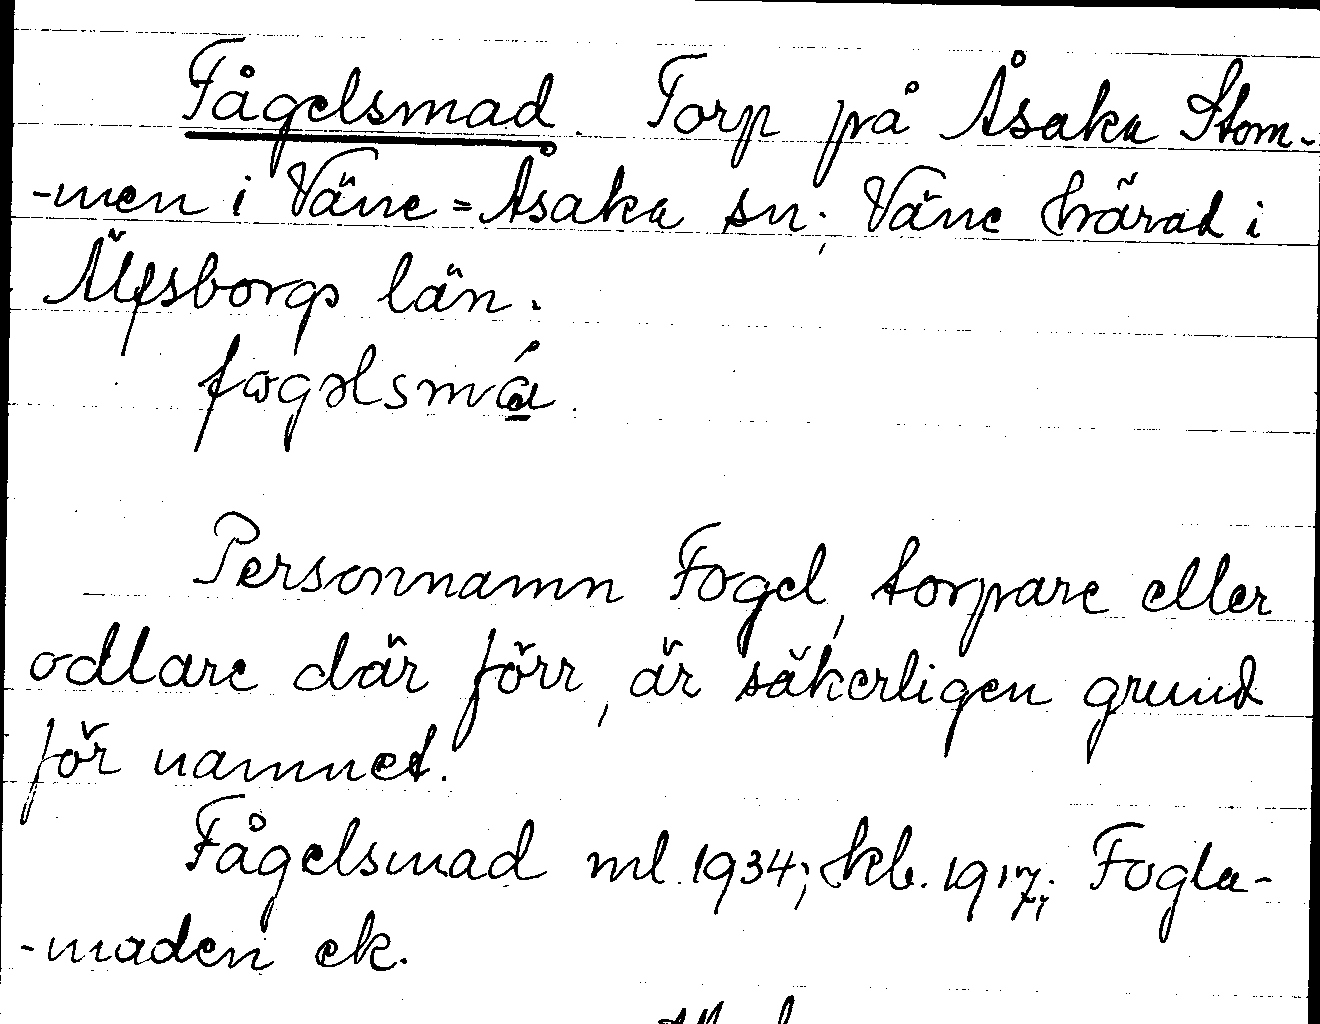 Fågelsmad. Torp på Åsaka Stom-
-men i Väne=Åsaka sn; Väne härad i
Älfsborgs län.
fogəlsmá
Personnamn Fogel, torpare eller
odlare där förr, är säkerligen grund
för namnet.
Fågelsmad ml. 1934; kb. 1917; Fogla-
-maden ek.